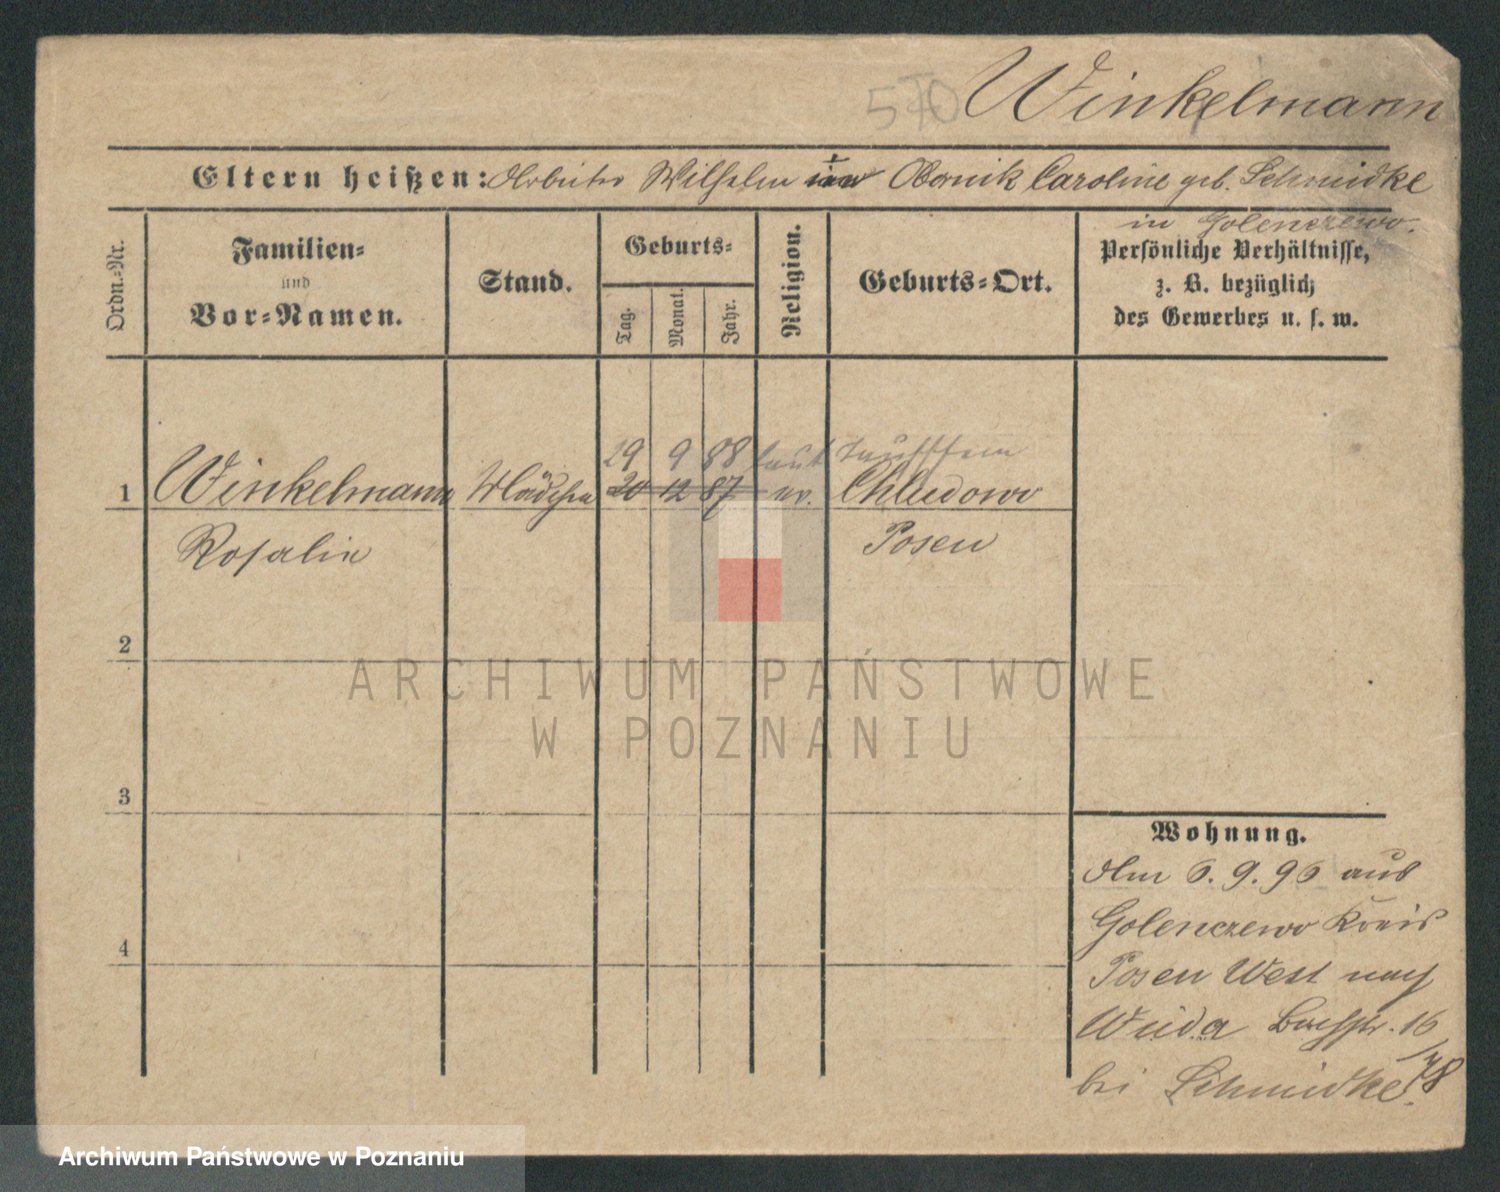 570 Winkelmann
Eltern heißen: Arbeiter Wilhelm in Obornik Caroline geb. Schmidke
in Golenczewo.
Ordn.-Nr.
Familien-
und
Vor-Namen.
Stand.
Geburts-
Tag.
Monat.
Jahr.
Religion.
Geburts-Ort.
Persönliche Verhältnisse,
z. B. bezüglich
des Gewerbes u. s. w.
29 9 88 laut Taufschein
1 Winkelmann Mädchen 20 12 87 ev. Chludowo
Rosalie Posen
2
3
4
Wohnung.
Am 6.9.96 aus
Golenczewo Kreis
Posen West nach
Wilda Bachstr. 16
bei Schmidke.
ARCHIWUM PAŃSTWOWE
W POZNANIU
Archiwum Państwowe w Poznaniu